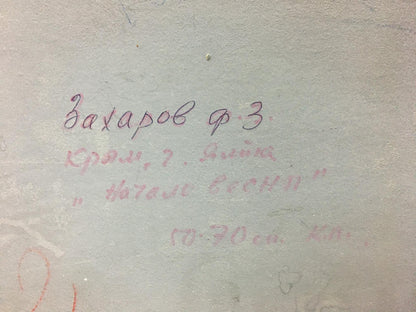 Захаров Ф.З.
Крым, г. Ялта
"Начало весны"
50-70 см. к.м.